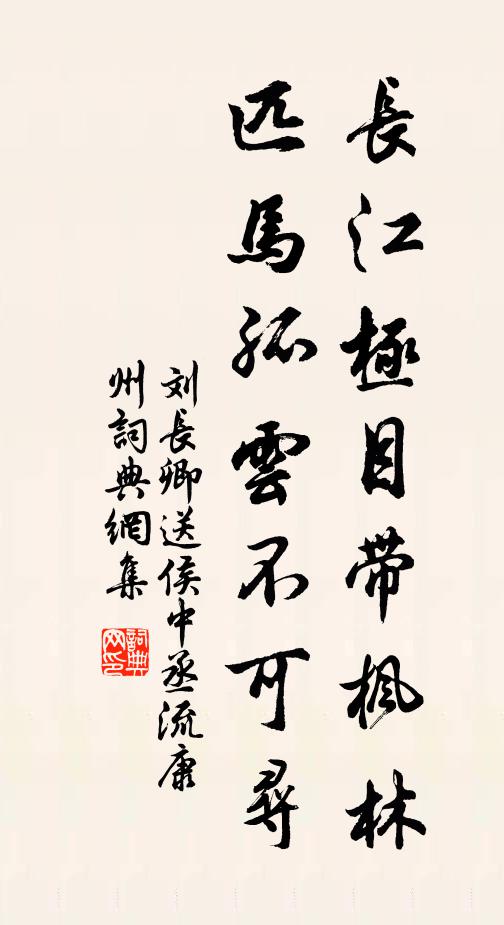 長江極目帶楓林
匹馬孤雲不可尋
刘長卿送侯中丞流康
州詞典網集
詞典
网印